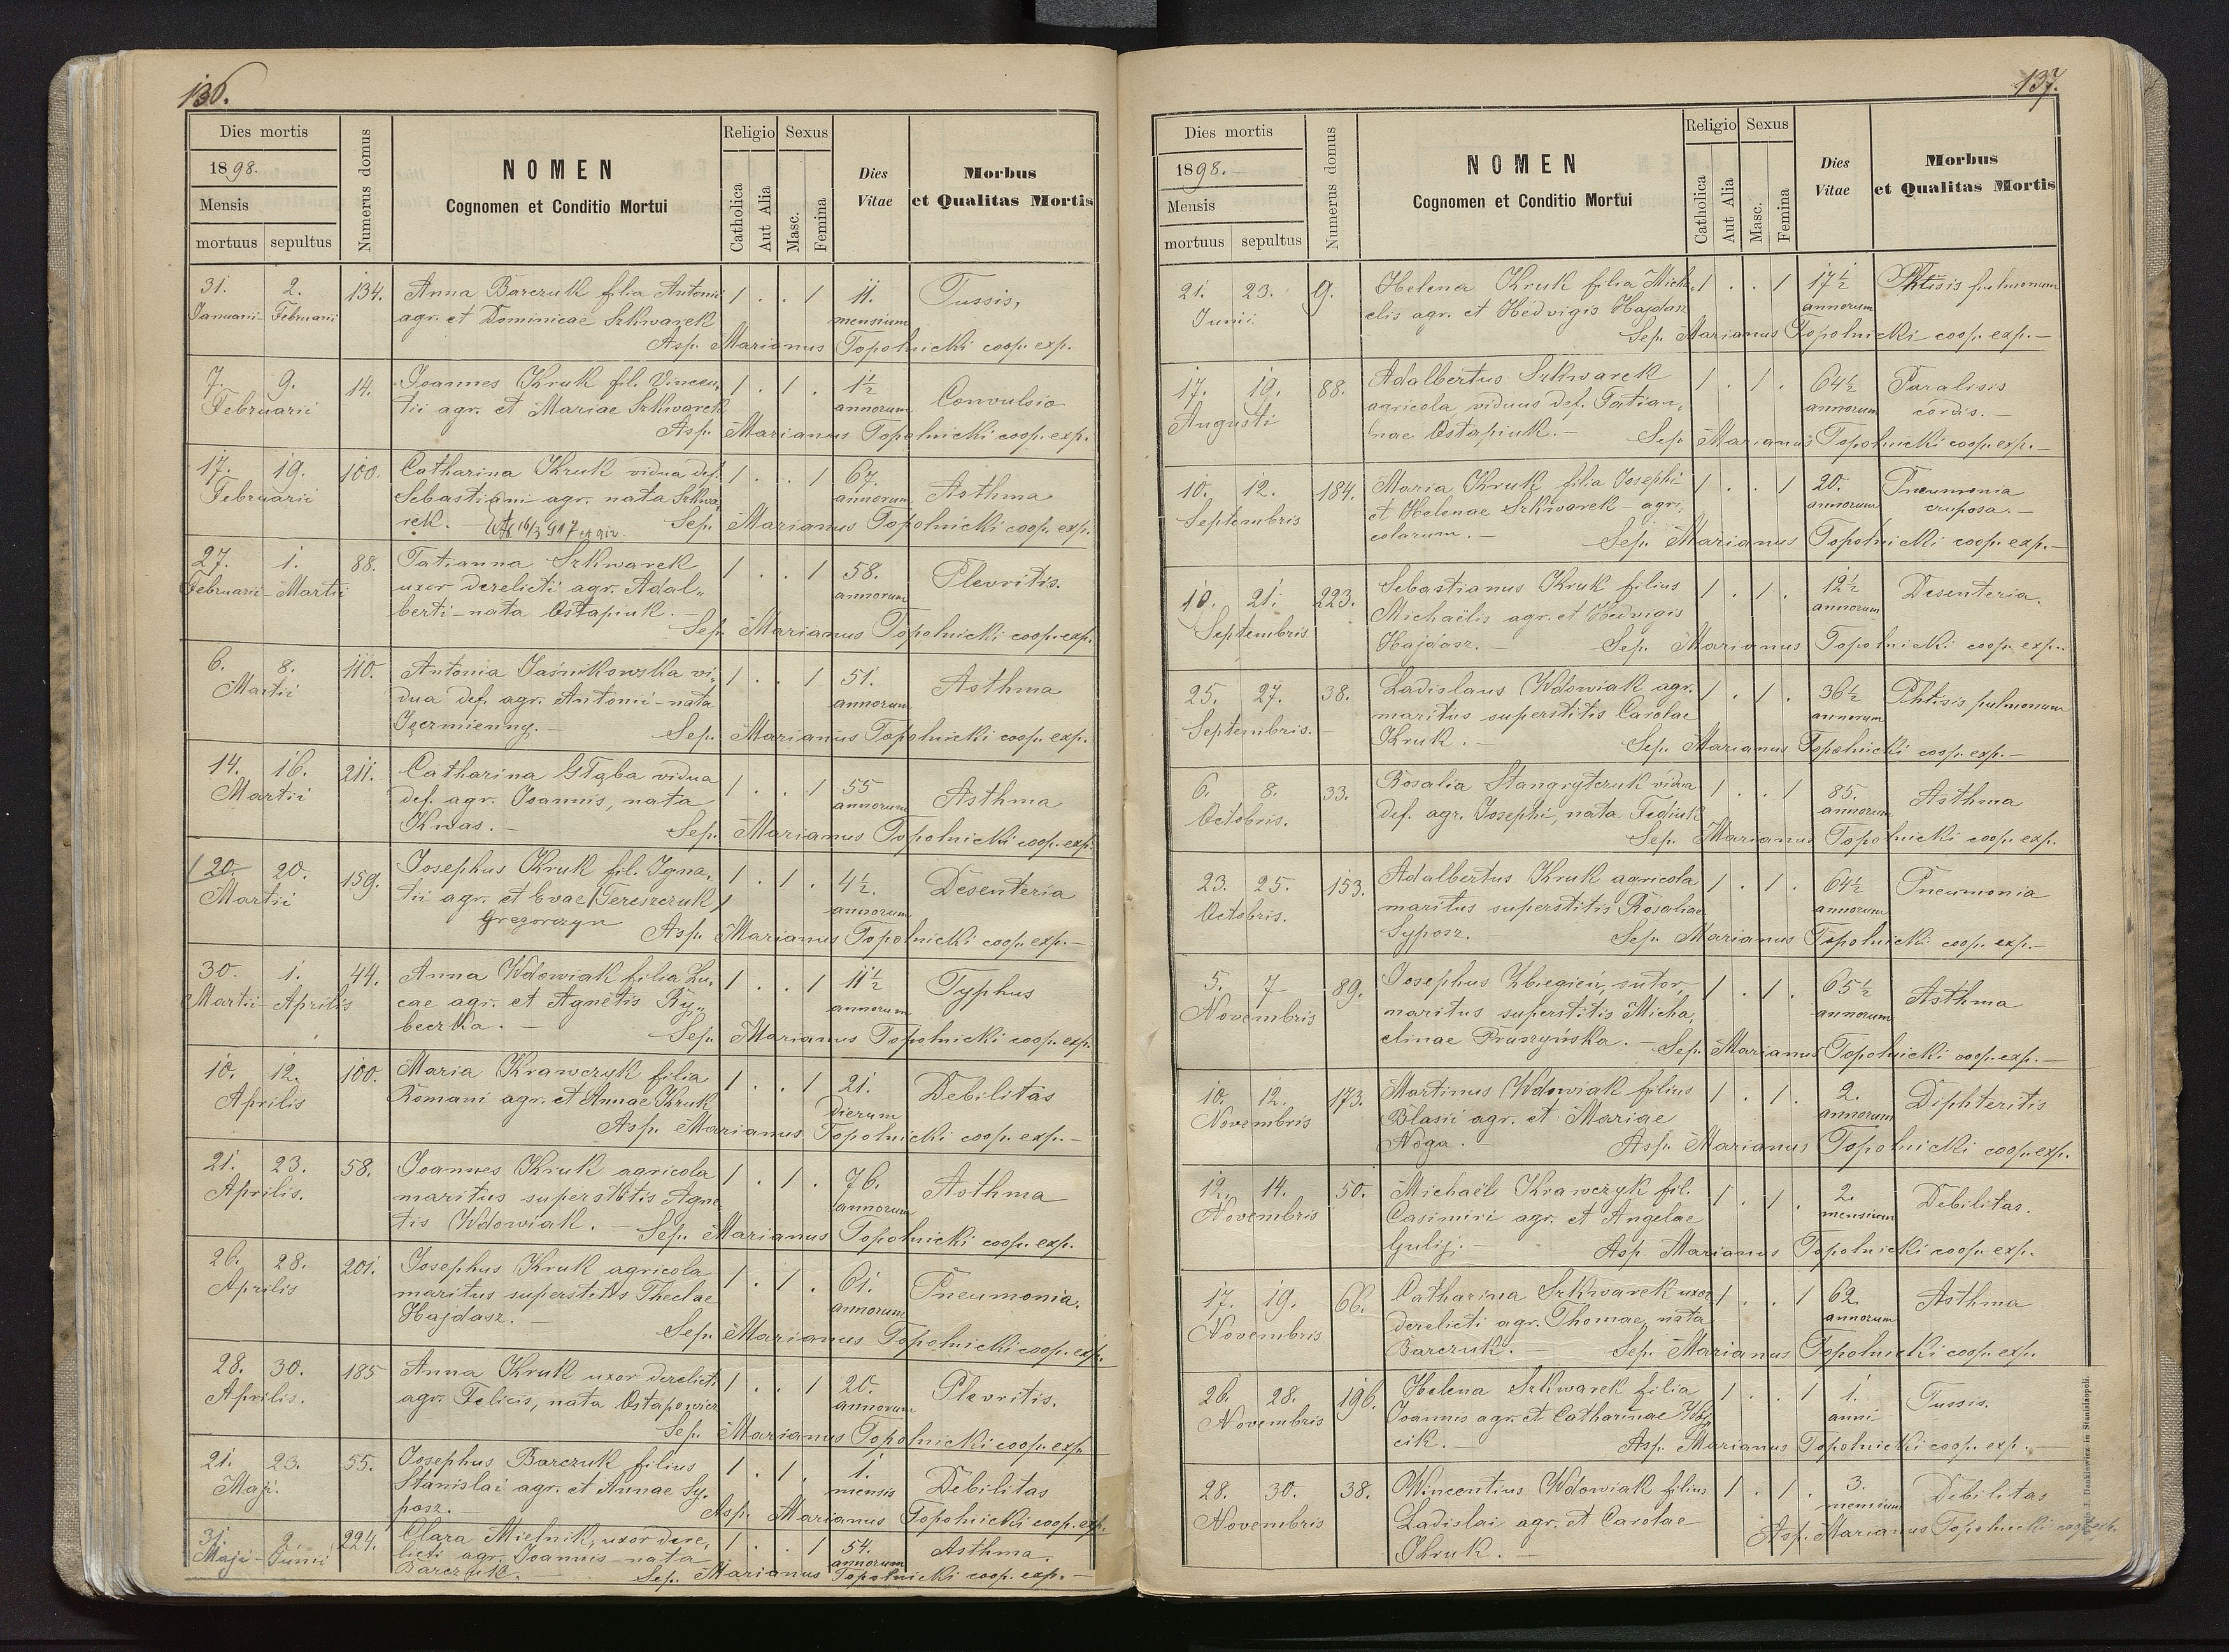 136.
Dies mortis
1898.
Mensis
mortuus sepultus
Numerus domus
NOMEN
Cognomen et Conditio Mortui
Religio
Catholica
Aut Alia
Sexus
Masc.
Femina
Dies
Vitae
Morbus
et Qualitas Mortis
31. 2. 134. Anna Barczuk filia Antonii 1 . . 1 11. Tussis,
Januarii Februarii agr. et Dominicae Szkwarek mensium
Asp. Marianus Topolnicki coop. exp.
7. 9. 14. Joannes Kruk fil. Vincen, 1 . 1 . 1½ Convulsio
Februarii tii agr. et Mariae Szkwarek annorum
Asp. Marianus Topolnicki coop. exp.
17. 19. 100. Catharina Kruk vidua def. 1 . . 1 67. Asthma
Februarii Sebastiani agr. nata Szkwa, annorum
rek. – 16/3 907 Sep. Marianus Topolnicki coop. exp.
27. 1. 88. Tatianna Szkwarek 1 . . 1 58. Plevritis.
Februarii – Martii uxor derelicti agr. Adal„ annorum
berti – nata Ostapiuk. – Sep. Marianus Topolnicki coop. exp.
6. 8. 110. Antonia Jaśnikowska vi„ 1 . . 1 51. Asthma
Martii dua def. agr. Antonii – nata annorum
Jęczmienny. – Sep. Marianus Topolnicki coop. exp.
14. 16. 211. Catharina Głąba vidua 1 . . 1 55 Asthma
Martii def. agr. Joannis, nata annorum
Kwas. – Sep. Marianus Topolnicki coop. exp.
20. 20. 159. Josephus Kruk fil. Igna, 1 . 1 . 4½. Desenteria
Martii tii agr. et Evae (Tereszczuk) annorum
Gregorczyn Asp. Marianus Topolnicki coop. exp. –
30. 1. 44. Anna Wdowiak filia Lu, 1 . . 1 11½ Typhus
Martii – Aprilis cae agr. et Agnetis Ry„ annorum
beczka. – Sep. Marianus Topolnicki coop. exp.
10. 12. 100. Maria Krawczyk filia 1 . . 1 21. Debilitas
Aprilis Romani agr. et Annae Kruk dierum
Asp. Marianus Topolnicki coop. exp. –
21. 23. 58. Joannes Kruk agricola 1 . 1 . 76. Asthma
Aprilis. maritus superstitis Agne annorum
tis Wdowiak. – Sep. Marianus Topolnicki coop. exp.
26. 28. 201. Josephus Kruk agricola 1 . 1 . 61. Pneumonia.
Aprilis maritus superstitis Theclae annorum
Hajdasz. – Sep. Marianus Topolnicki coop. exp.
28. 30. 185 Anna Kruk uxor derelicti 1 . . 1 20. Plevritis.
Aprilis. agr. Felicis, nata Ostapowicz annorum
Sep. Marianus Topolnicki coop. exp.
21. 23. 55. Josephus Barczuk filius 1 . 1 . 1. Debilitas
Maji. Stanislai agr. et Annae Sy, mensis
posz. – Asp. Marianus Topolnicki coop. exp.
31. 2. 224. Clara Mielnik, uxor dere, 1 . . 1 54. Asthma.
Maji – Junii licti agr. Joannis – nata annorum
Barczuk. – Sep. Marianus Topolnicki coop. exp. –
137.
Dies mortis
1898. –
Mensis
mortuus sepultus
Numerus domus
NOMEN
Cognomen et Conditio Mortui
Religio
Catholica
Aut Alia
Sexus
Masc.
Femina
Dies
Vitae
Morbus
et Qualitas Mortis
21. 23. 9. Helena Kruk filia Micha, 1 . . 1 17½ Phtisis pulmonum
Junii elis agr. et Hedvigis Hajdasz annorum
Sep. Marianus Topolnicki coop. exp. –
17. 19. 88. Adalbertus Szkwarek 1 . 1 . 64½ Paralisis
Augusti agricola viduus def. Tatian, annorum cordis. –
nae Ostapiuk. – Sep. Marianus Topolnicki coop. exp. –
10. 12. 184. Maria Kruk filia Josephi 1 . . 1 20. Pneumonia
Septembris et Helenae Szkwarek – agri, annorum cruposa. –
colarum. – Sep. Marianus Topolnicki coop. exp. –
19. 21. 223. Sebastianus Kruk filius 1 . 1 . 12½ Desenteria.
Septembris Michaëlis agr. et Hedvigis annorum
Hajdasz. – Sep. Marianus Topolnicki coop. exp.
25. 27. 38. Ladislaus Wdowiak agr. 1 . 1 . 36½ Phtisis pulmonum
Septembris. maritus superstitis Carolae annorum
Kruk. – Sep. Marianus Topolnicki coop. exp. –
6. 8. 33. Rosalia Stangryczuk vidua 1 . . 1 85. Asthma
Octobris. def. agr. Josephi, nata Fediuk annorum
Sep. Marianus Topolnicki coop. exp.
23. 25. 153. Adalbertus Kruk agricola 1 . 1 . 64½ Pneumonia
Octobris. maritus superstitis Rosaliae annorum
Syposz. Sep. Marianus Topolnicki coop. exp. –
5. 7 89. Josephus Zbiegień, sutor, 1 . 1 . 65½ Asthma
Novembris maritus superstitis Micha, annorum
elinae Pruszyńska. – Sep. Marianus Topolnicki coop. exp. –
10. 12. 173. Martinus Wdowiak filius 1 . 1 . 2. Diphteritis
Novembris Blasii agr. et Mariae annorum
Noga. – Asp. Marianus Topolnicki coop. exp.
12. 14. 50. Michaël Krawczyk fil. 1 . 1 . 2. Debilitas.
Novembris Casimiri agr. et Angelae mensium
Gulij. – Asp. Marianus Topolnicki coop. exp.
17. 19. 66. Catharina Szkwarek uxor 1 . . 1 62. Asthma
Novembris derelicti agr. Thomae, nata annorum
Barczuk. – Sep. Marianus Topolnicki coop. exp.
26. 28. 196. Helena Szkwarek filia 1 . . 1 1. Tussis.
Novembris Joannis agr. et Catharinae Wój anni
cik. – Asp. Marianus Topolnicki coop. exp. –
28. 30. 38. Wincentius Wdowiak filius 1 . 1 . 3. Debilitas
Novembris Ladislai agr. et Carolae mensium
Kruk. – Asp. Marianus Topolnicki coop. exp.
J. Dankiewicz in Stanislaopoli.